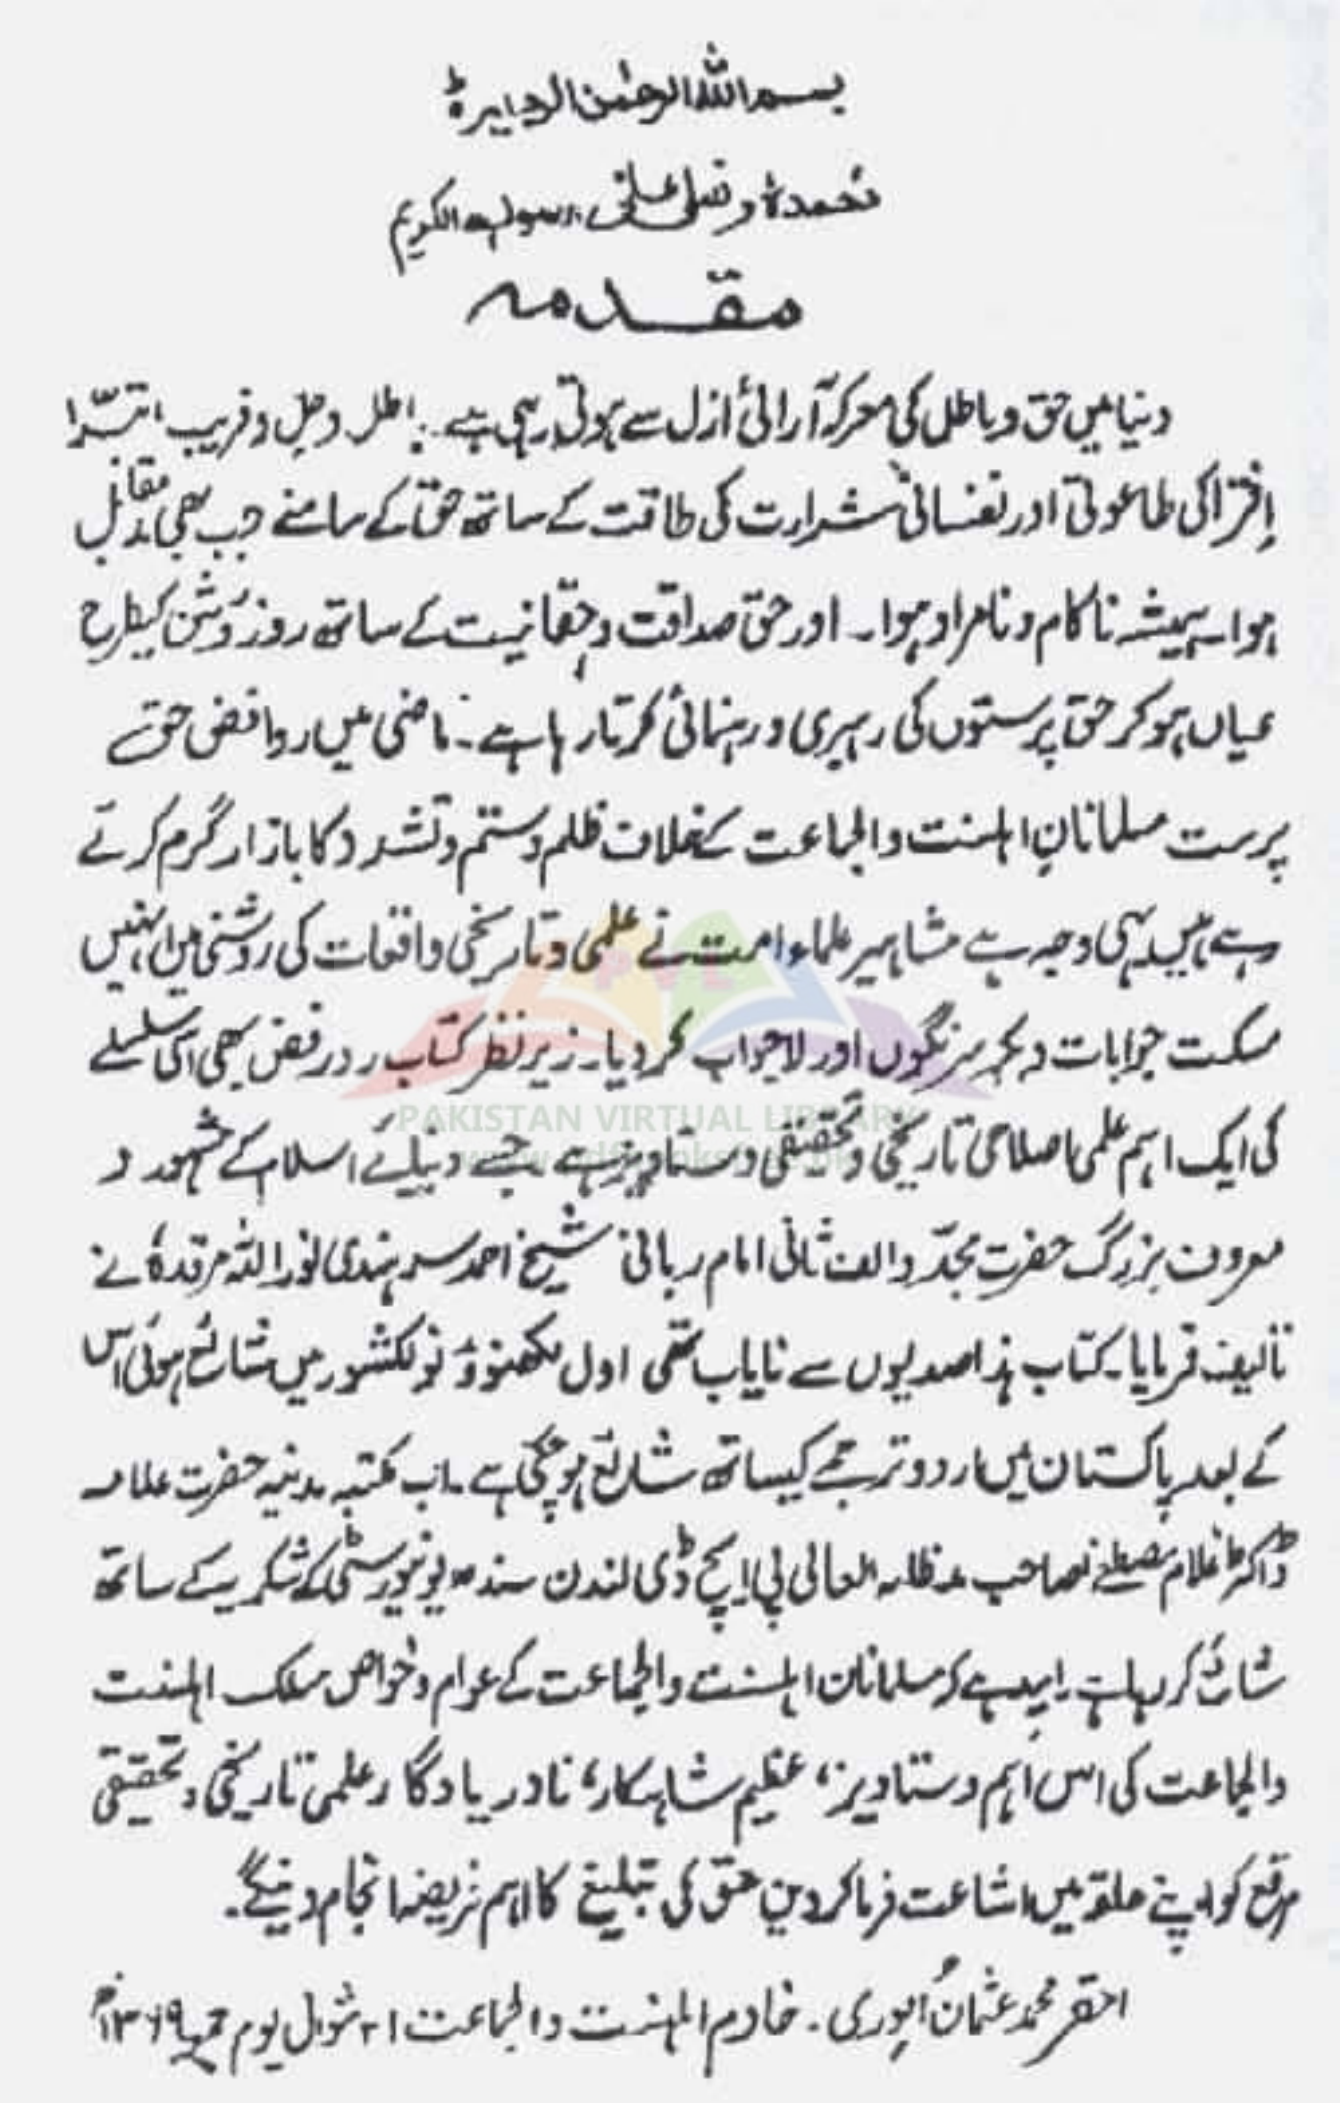 بسم اللہ الرحمٰن الرحیم
نحمدہٗ و نصلی علیٰ رسولہ الکریم
مقدمہ
دنیا میں حق و باطل کی معرکہ آرائی ازل سے ہوتی رہی ہے۔ باطل دجل و فریب
افترا کی طاغوتی اور نفسانی شرارت کی طاقت کے ساتھ حق کے سامنے جب بھی مدِ مقابل
ہوا۔ ہمیشہ ناکام و نامراد ہوا۔ اور حق صداقت و حقانیت کے ساتھ روزِ روشن کیطرح
عیاں ہو کر حق پرستوں کی رہبری و رہنمائی کرتا رہا ہے۔ ماضی میں روافض حق
پرست مسلمانانِ اہلسنت والجماعت کے خلاف ظلم و ستم و تشدد کا بازار گرم کرتے
رہے ہیں یہی وجہ ہے مشاہیر علماء امت نے علمی و تاریخی واقعات کی روشنی میں انہیں
مسکت جوابات دیکر سرنگوں اور لاجواب کر دیا۔ زیرِ نظر کتاب رد رفض بھی اسی سلسلے
PVL
PAKISTAN VIRTUAL LIBRARY
کی ایک اہم علمی اصلاحی تاریخی و تحقیقی دستاویز ہے جسے دنیائے اسلام کے مشہور و
معروف بزرگ حضرت مجدّد الف ثانی امام ربانی شیخ احمد سرہندی نور اللہ مرقدہٗ نے
تالیف فرمایا۔ کتاب ہذا صدیوں سے نایاب تھی اول لکھنؤ نولکشور میں شائع ہوئی اس
کے بعد پاکستان میں اردو ترجمے کیساتھ شائع ہو چکی ہے۔ اب مکتبہ مدنیہ حضرت علامہ
ڈاکٹر غلام مصطفے صاحب مدظلہ العالی پی ایچ ڈی لندن سندھ یونیورسٹی کے شکریے کے ساتھ
شائع کر رہا ہے۔ امید ہے کہ مسلمانان اہلسنت والجماعت کے عوام و خواص مسلک اہلسنت
والجماعت کی اس اہم دستاویز، عظیم شاہکار، نادر یادگار علمی تاریخی و تحقیقی
مرقع کو اپنے حلقہ میں اشاعت فرما کر دینِ حق کی تبلیغ کا اہم فریضہ انجام دینگے۔
احقر محمد عثمان الوری۔ خادم اہلسنت والجماعت ۲۱ شوال یوم جمعہ